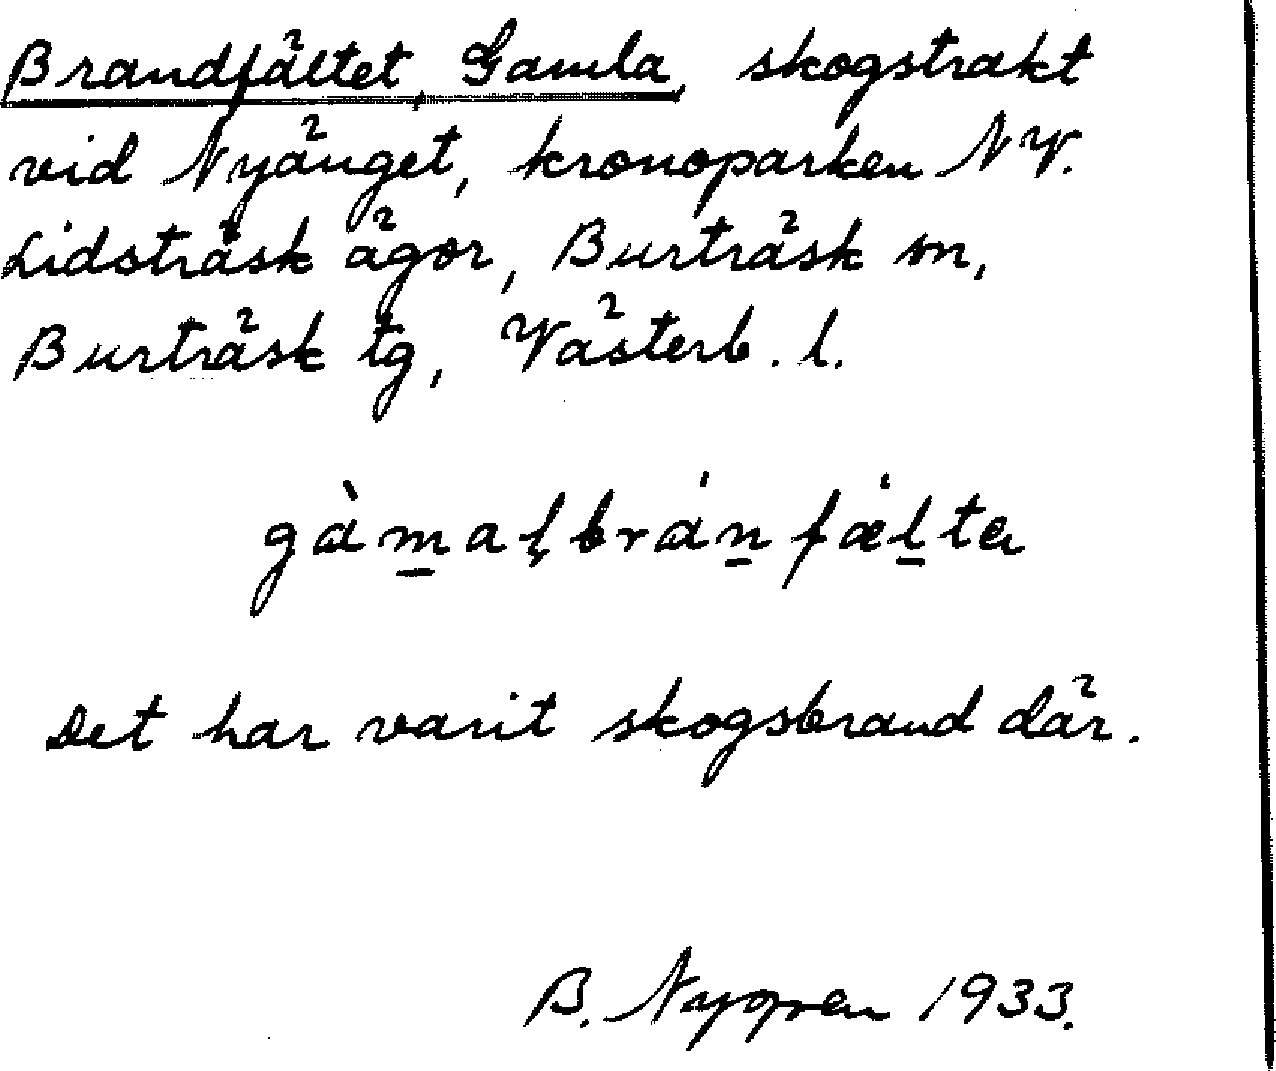 Brandfältet, Gamla, skogstrakt
vid Nyänget, kronoparken NV.
Lidsträsk ägor, Burträsk sn,
Burträsk tg, Västerb. l.
gàm̲aḷbrán̲fæ̍l̲tə
Det har varit skogsbrand där.
B. Nygren 1933.